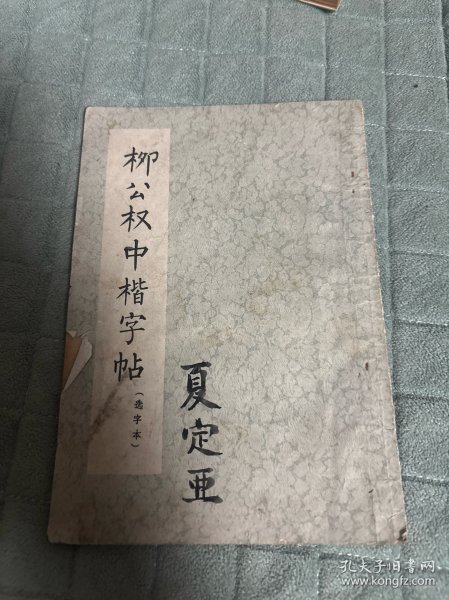 柳公权中楷字帖
（选字本）
夏定亚
孔夫子旧书网
www.kongfz.com